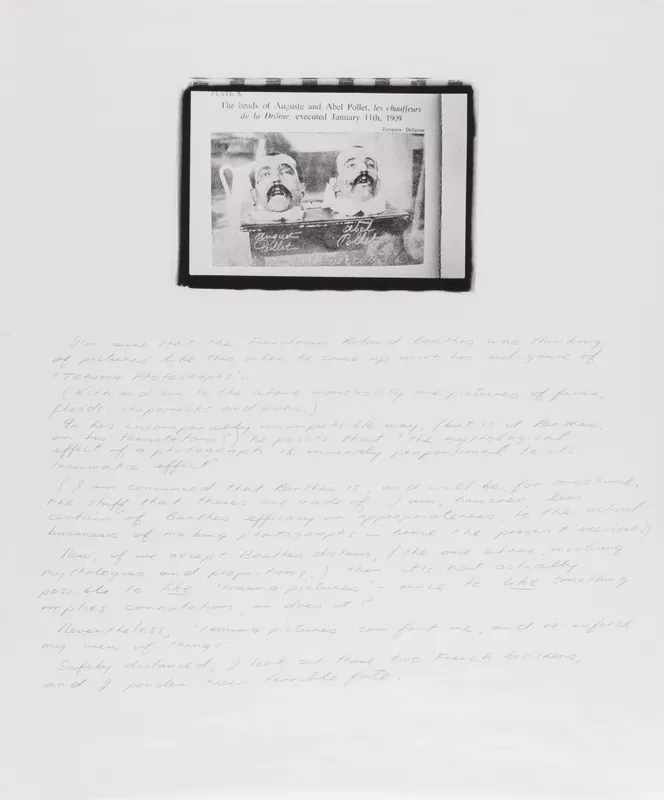 PLATE X
The heads of Auguste and Abel Pollet, les chauffeurs
de la Drôme, executed January 11th, 1909
Jacques Delarue
Auguste Pollet
Abel Pollet
I'm sure that the Frenchman Roland Barthes was thinking
of pictures like this when he came up with his sub-genre of
'TRAUMA Photographs'.
(Kith and kin to the above monstrosity are pictures of fires,
floods, shipwrecks and wars.)
In his incomparably incompatible way, (but is it Barthes,
or his translators?) he posits that "the mythological
effect of a photograph is inversely proportional to its
traumatic effect"
(I am convinced that Barthes is, and will be for some time,
the stuff that theses are made of. I am, however, less
certain of Barthes efficacy or appropriateness, to the actual
business of making photographs — hence the present exercise.)
Now, if we accept Barthes dictum, (the one above, involving
mythologies and proportions,) then it is not actually
possible to like 'trauma pictures' - since to like something
implies connotation, or does it?
Nevertheless, 'trauma pictures' comfort me, and re-enforce
my view of things.
Safely distanced, I look at these two French brothers,
and I ponder their terrible fate.